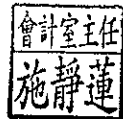 會計室主任
施靜蓮